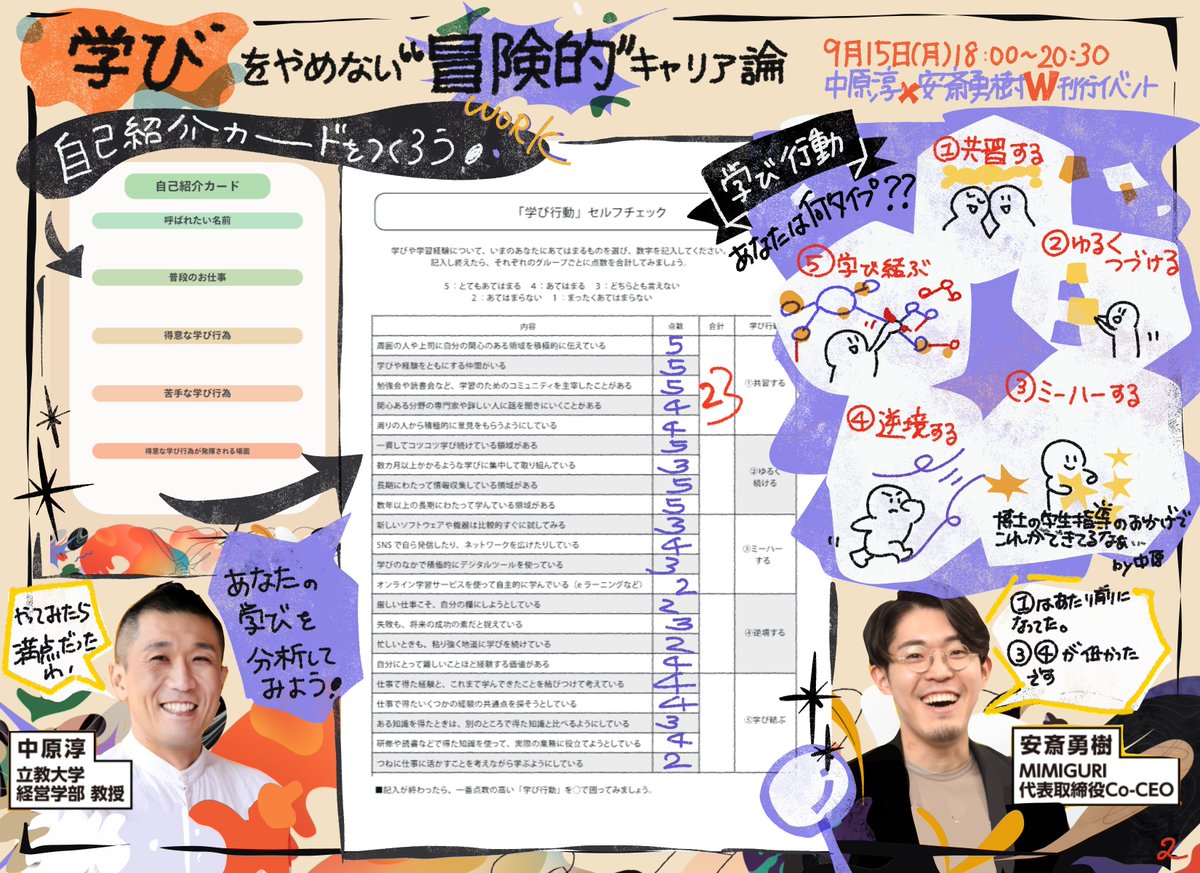 学びをやめない“冒険的”キャリア論
9月15日(月)18:00~20:30
中原淳×安斎勇樹W刊行イベント
WORK
自己紹介カードをつくろう。
自己紹介カード
呼ばれたい名前
普段のお仕事
得意な学び行為
苦手な学び行為
得意な学び行為が発揮される場面
「学び行動」セルフチェック
学びや学習経験について、いまのあなたにあてはまるものを選び、数字を記入してください。
記入し終えたら、それぞれのグループごとに点数を合計してみましょう。
5：とてもあてはまる 4：あてはまる 3：どちらとも言えない
2：あてはまらない 1：まったくあてはまらない
内容 点数 合計 学び行動
周囲の人や上司に自分の関心のある領域を積極的に伝えている 5
学びや経験をともにする仲間がいる 5
勉強会や読書会など、学習のためのコミュニティを主宰したことがある 5 23 ①共習する
関心ある分野の専門家や詳しい人に話を聞きにいくことがある 4
周りの人から積極的に意見をもらうようにしている 4
一貫してコツコツ学び続けている領域がある 5
数カ月以上かかるような学びに集中して取り組んでいる 3 ②ゆるく
長期にわたって情報収集している領域がある 5 続ける
数年以上の長期にわたって学んでいる領域がある 5
新しいソフトウェアや機器は比較的すぐに試してみる 3
SNSで自ら発信したり、ネットワークを広げたりしている 4 ③ミーハー
学びのなかで積極的にデジタルツールを使っている 3 する
オンライン学習サービスを使って自主的に学んでいる（eラーニングなど） 2
厳しい仕事こそ、自分の糧にしようとしている 2
失敗も、将来の成功の素だと捉えている 3 ④逆境する
忙しいときも、粘り強く地道に学びを続けている 2
自分にとって難しいことほど経験する価値がある 4
仕事で得た経験と、これまで学んできたことを結びつけて考えている 4
仕事で得たいくつかの経験の共通点を探そうとしている 4
ある知識を得たときは、別のところで得た知識と比べるようにしている 3 ⑤学び結ぶ
研修や読書などで得た知識を使って、実際の業務に役立てようとしている 4
つねに仕事に活かすことを考えながら学ぶようにしている 2
■記入が終わったら、一番点数の高い「学び行動」を○で囲ってみましょう。
学び行動
あなたは何タイプ??
①共習する
②ゆるく
つづける
⑤学び結ぶ
③ミーハーする
④逆境する
博士の学生指導のおかげで
これができてるなぁ…
by中原
あなたの
学びを
分析して
みよう!
やってみたら
満点だった
わ!
中原淳
立教大学
経営学部 教授
①はあたり前に
なってた。
③④が低かった
です
安斎勇樹
MIMIGURI
代表取締役Co-CEO
2